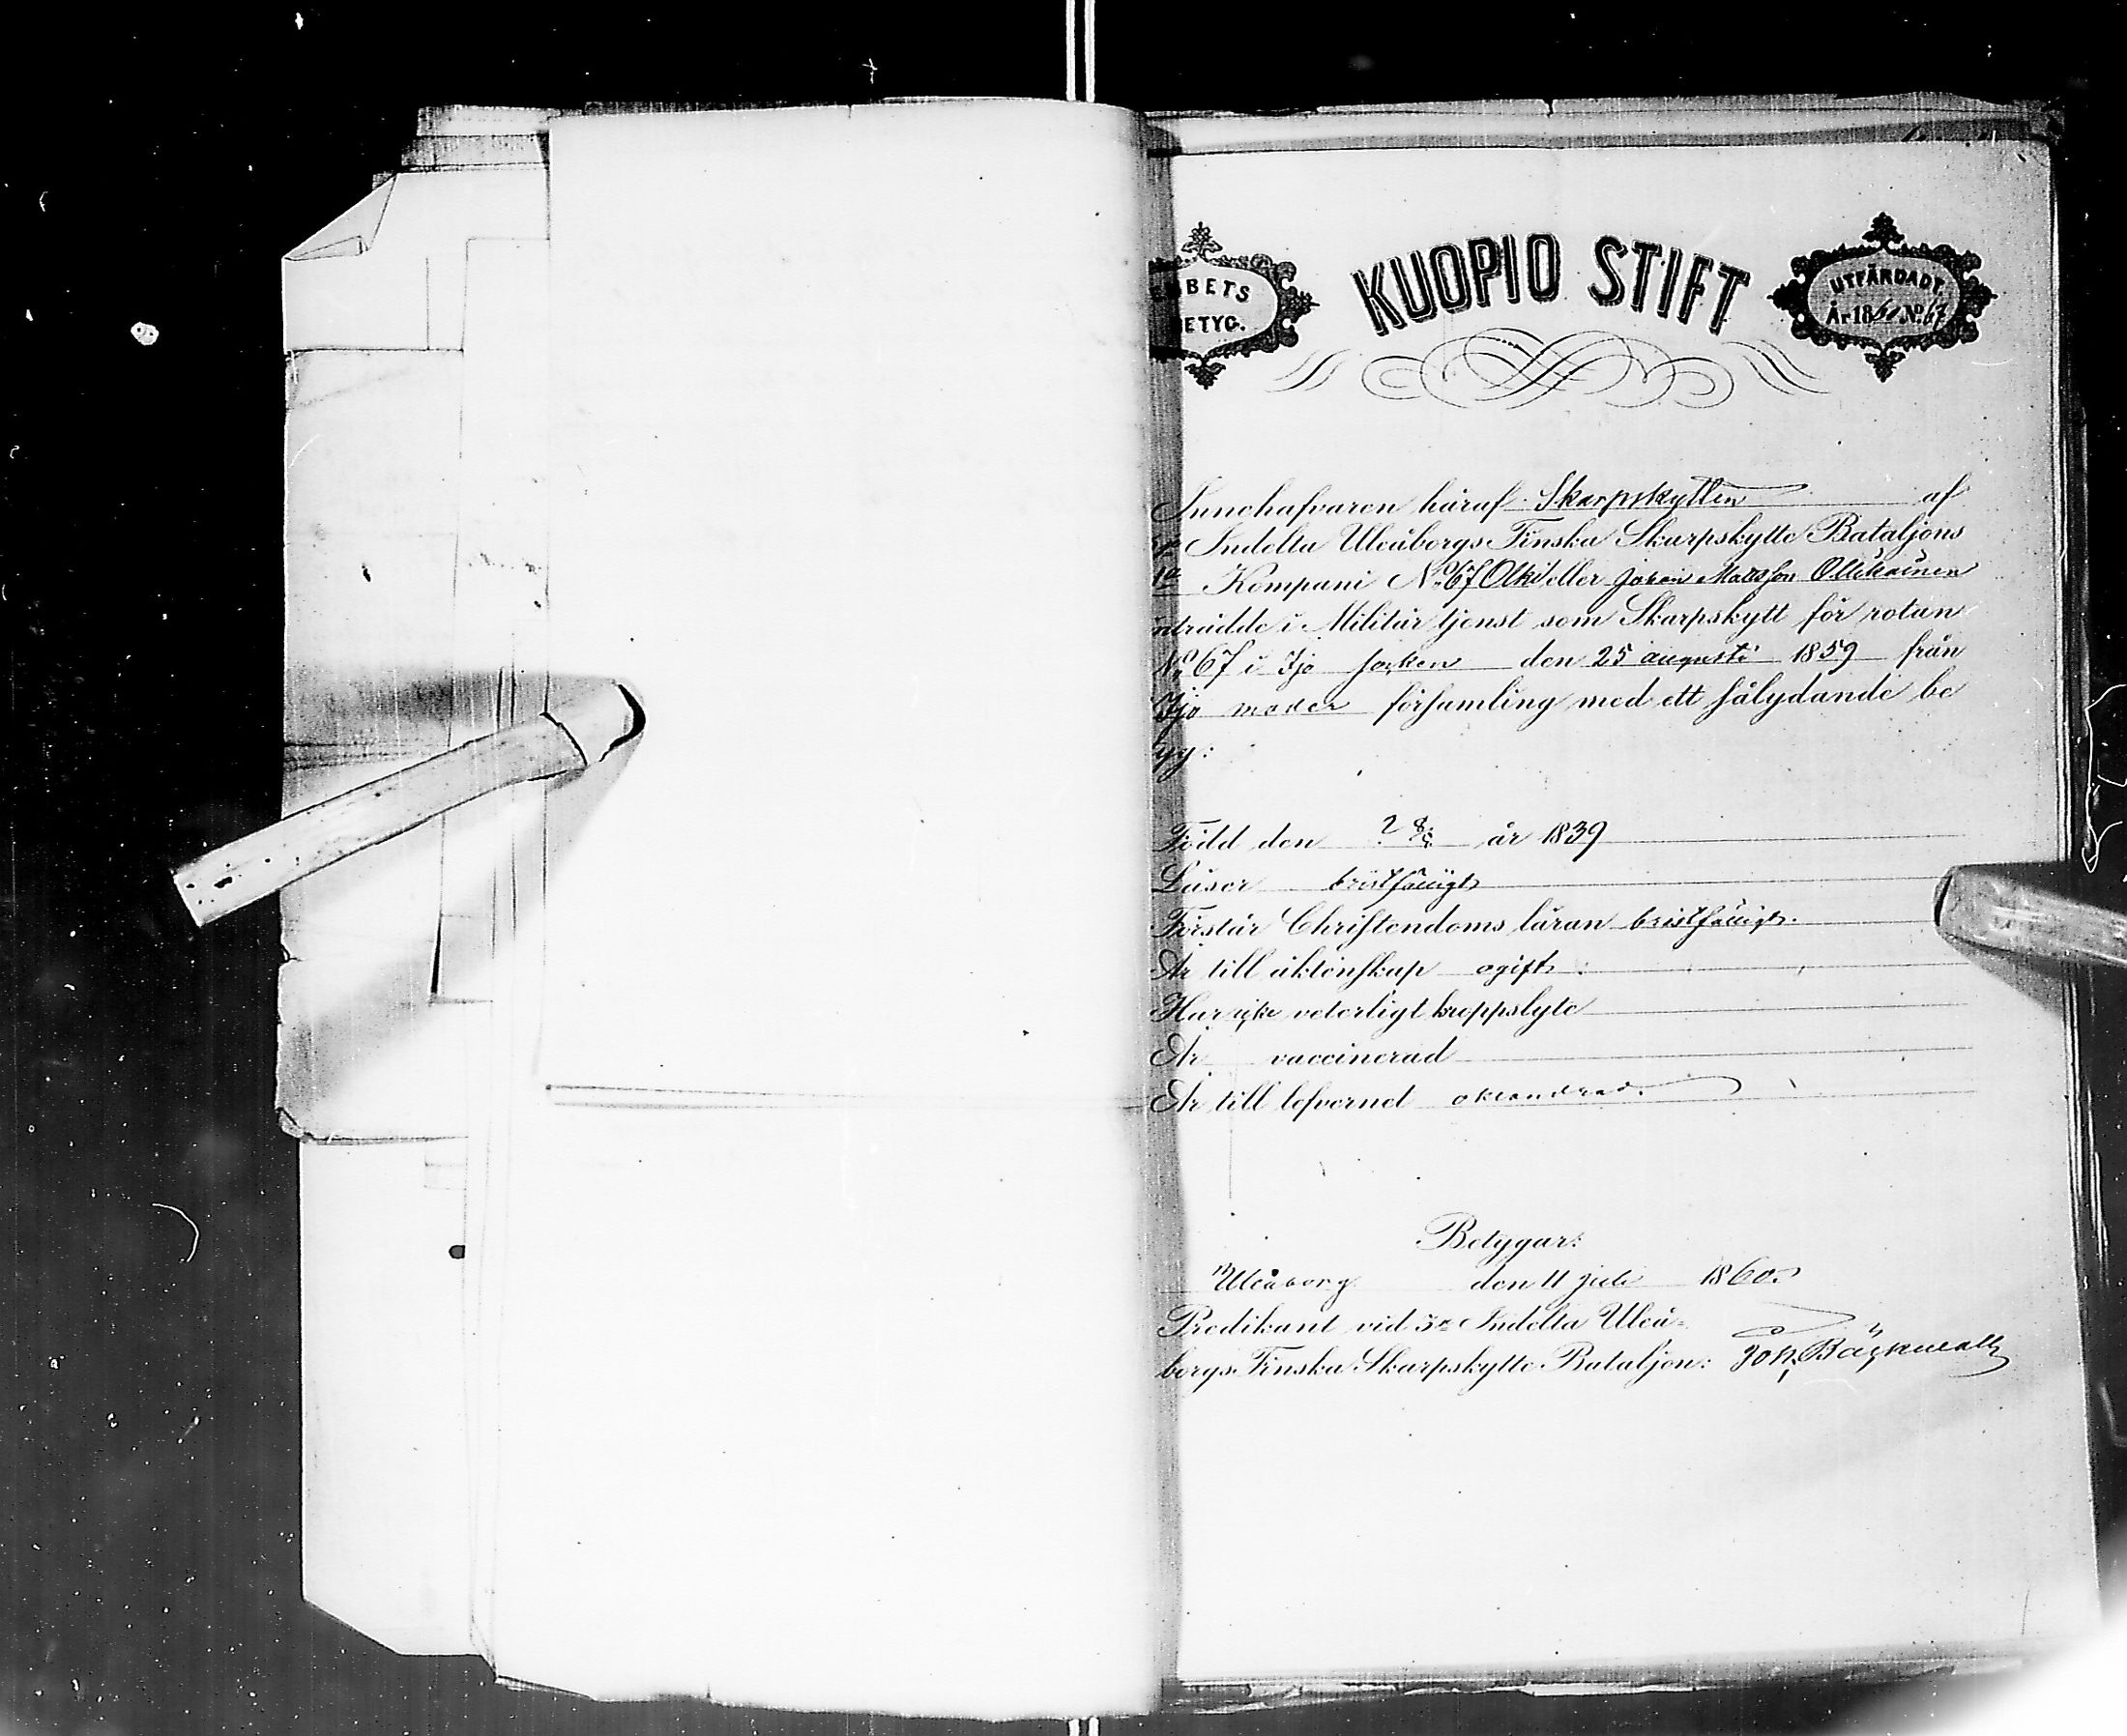 EMBETS
BETYG.
KUOPIO STIFT
UTFÄRDADT.
År 1860 No 67
Innehafvaren häraf Skarpskytten af
Indelta Uleåborgs Finska Skarpskytte Bataljons
1a Kompani No 67 Olki eller Johan Matsson Ollikainen
nträdde i Militär tjenst som Skarpskytt för rotan
No 67 i Ijo socken den 25 augusti 1859 från
Ijo moder församling med ett sålydande be
tyg:
Född den 2 8/ år 1839
Läser bristfälligt
Förstår Christendoms läran bristfälligt.
Är till äktenskap ogift
Har icke veterligt kroppslyte
Är vaccinerad
Är till lefvernet oklandrad.
Betygar:
Uleåborg den 11 juli 1860.
Predikant vid 3e Indelta Uleå-
borgs Finska Skarpskytte Bataljon: Joh. Bäckvall